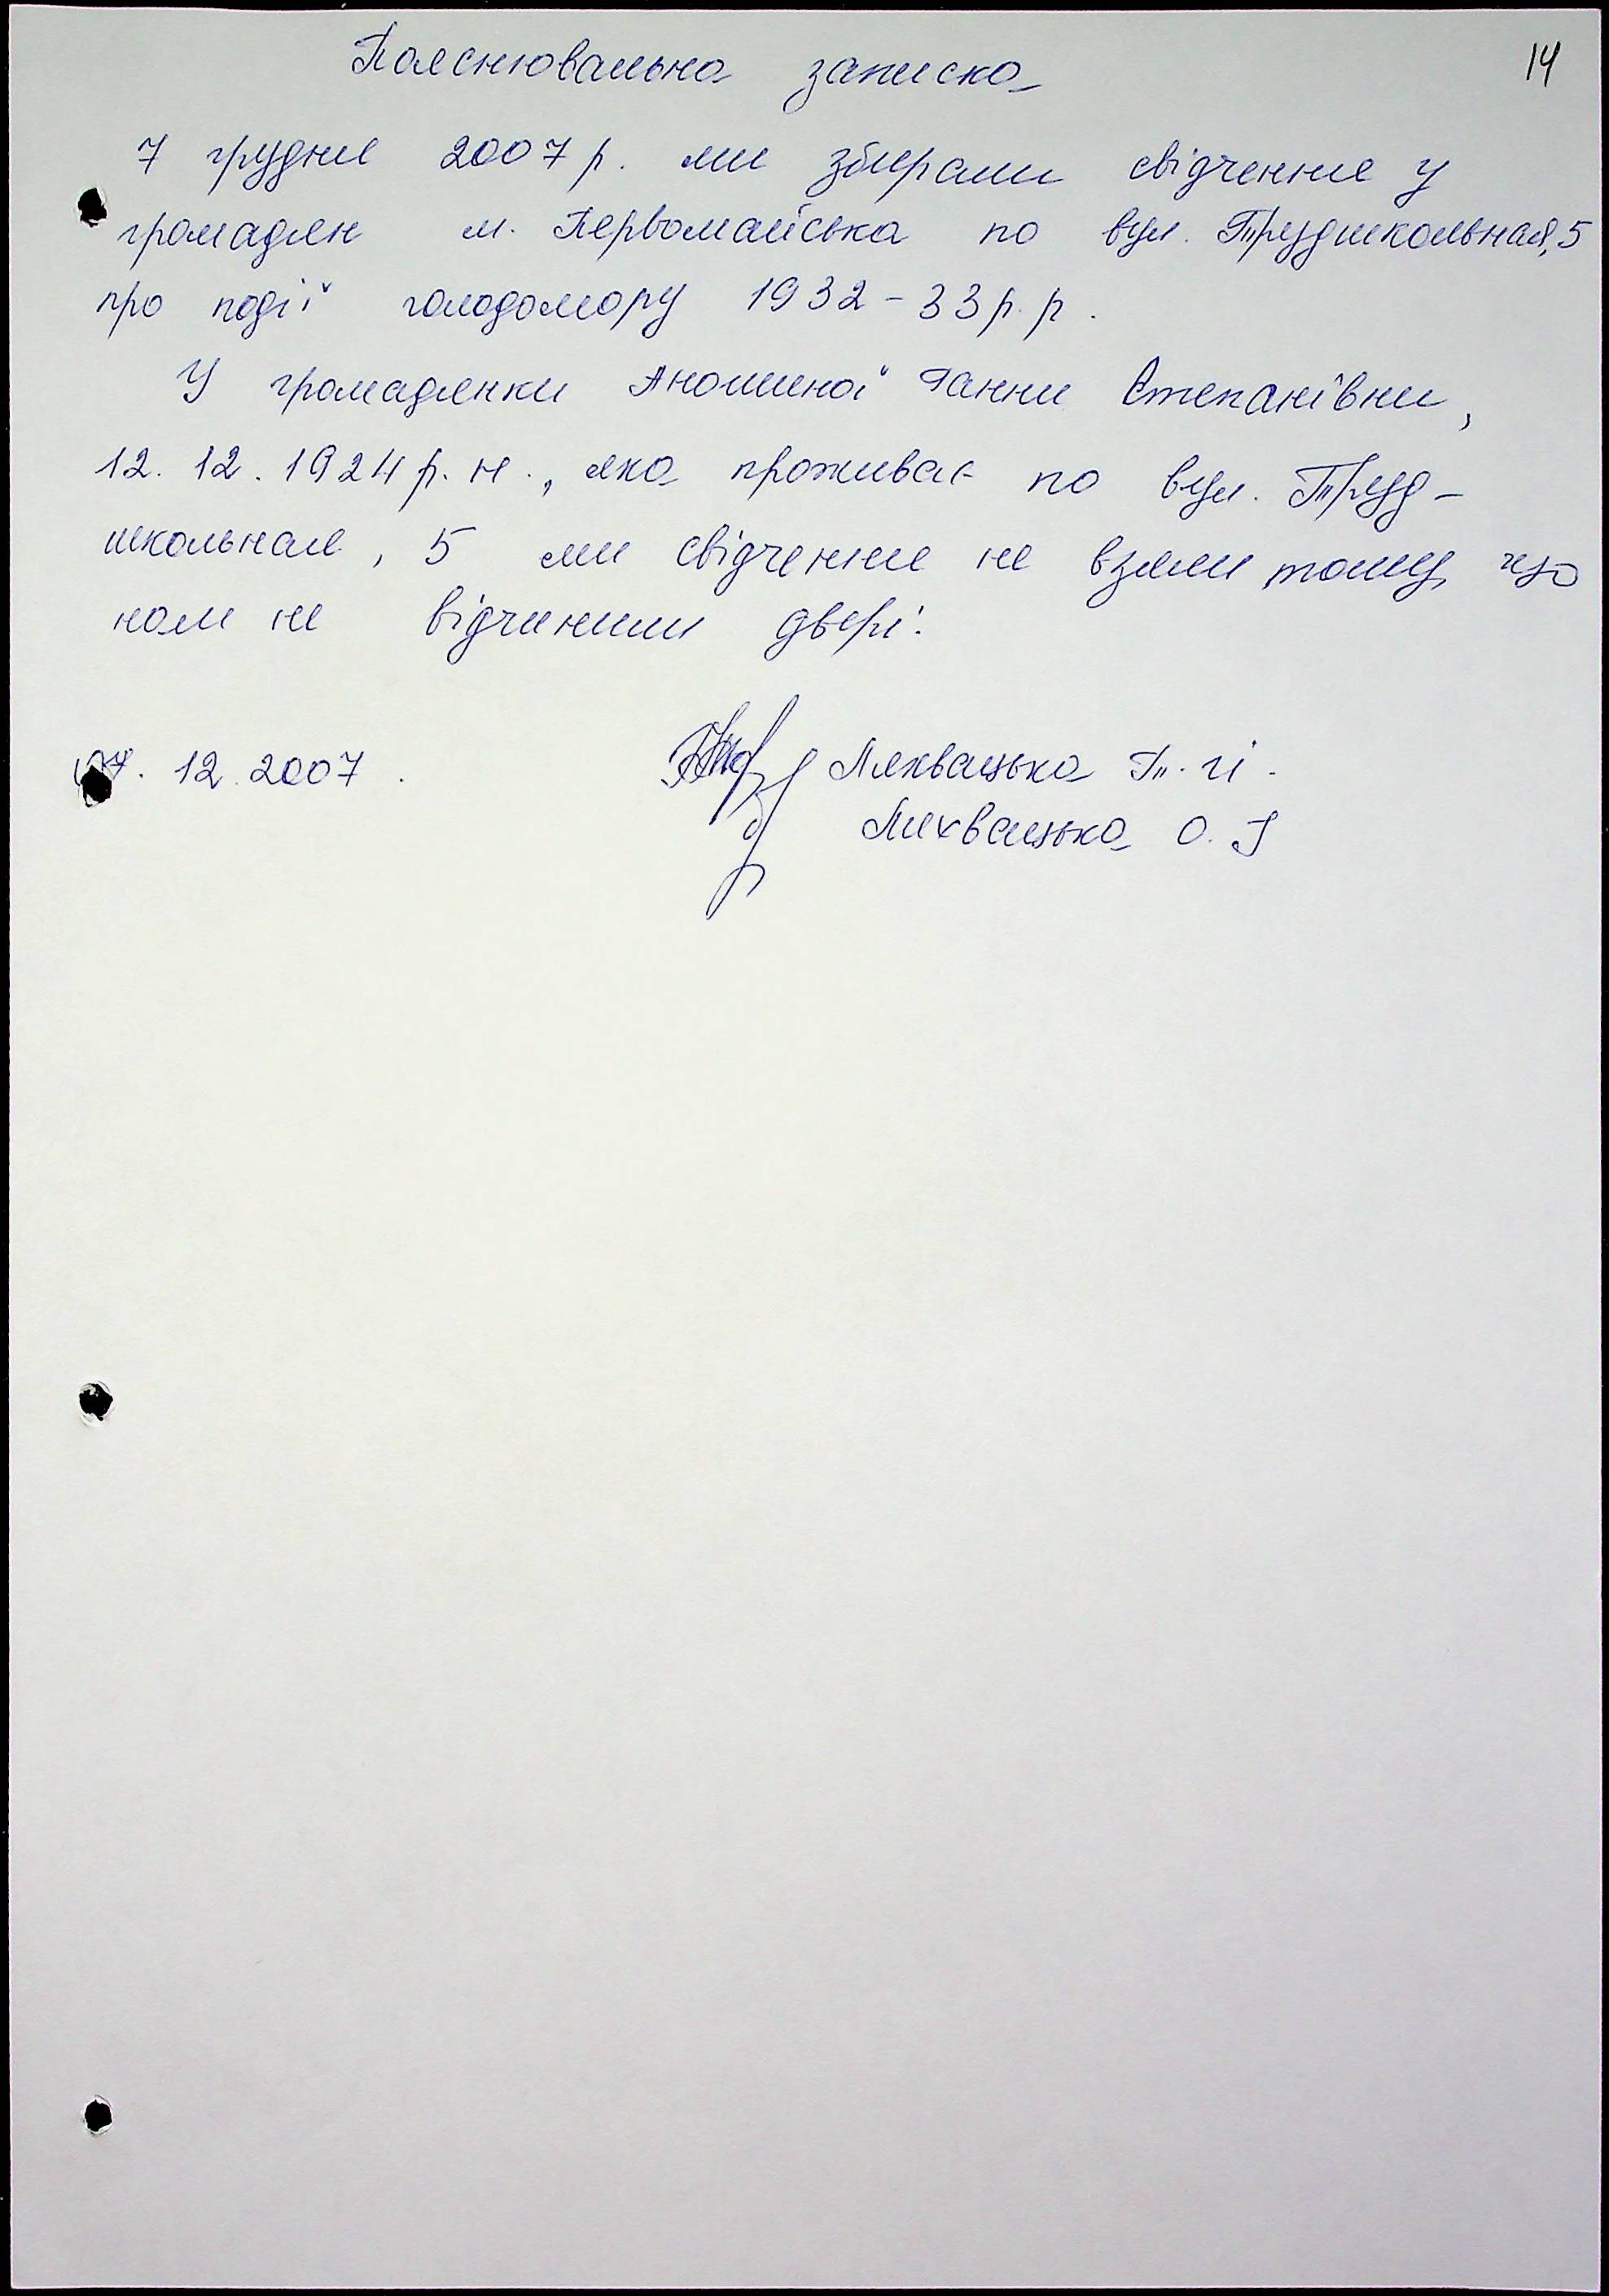 14
Пояснювальна записка
7 грудня 2007 р. ми збирали свідчення у
громадян м. Первомайська по вул. Трудшкольная, 5
про події голодомору 1932 - 33 р. р.
У громадянки Аношиної Ганни Степанівни,
12. 12. 1924 р. н., яка проживає по вул. Труд-
школьная, 5 ми свідчення не взяли тому, що
нам не відчинили двері.
12. 2007.
Ляхвацька Т. І.
Ляхвацька О. І